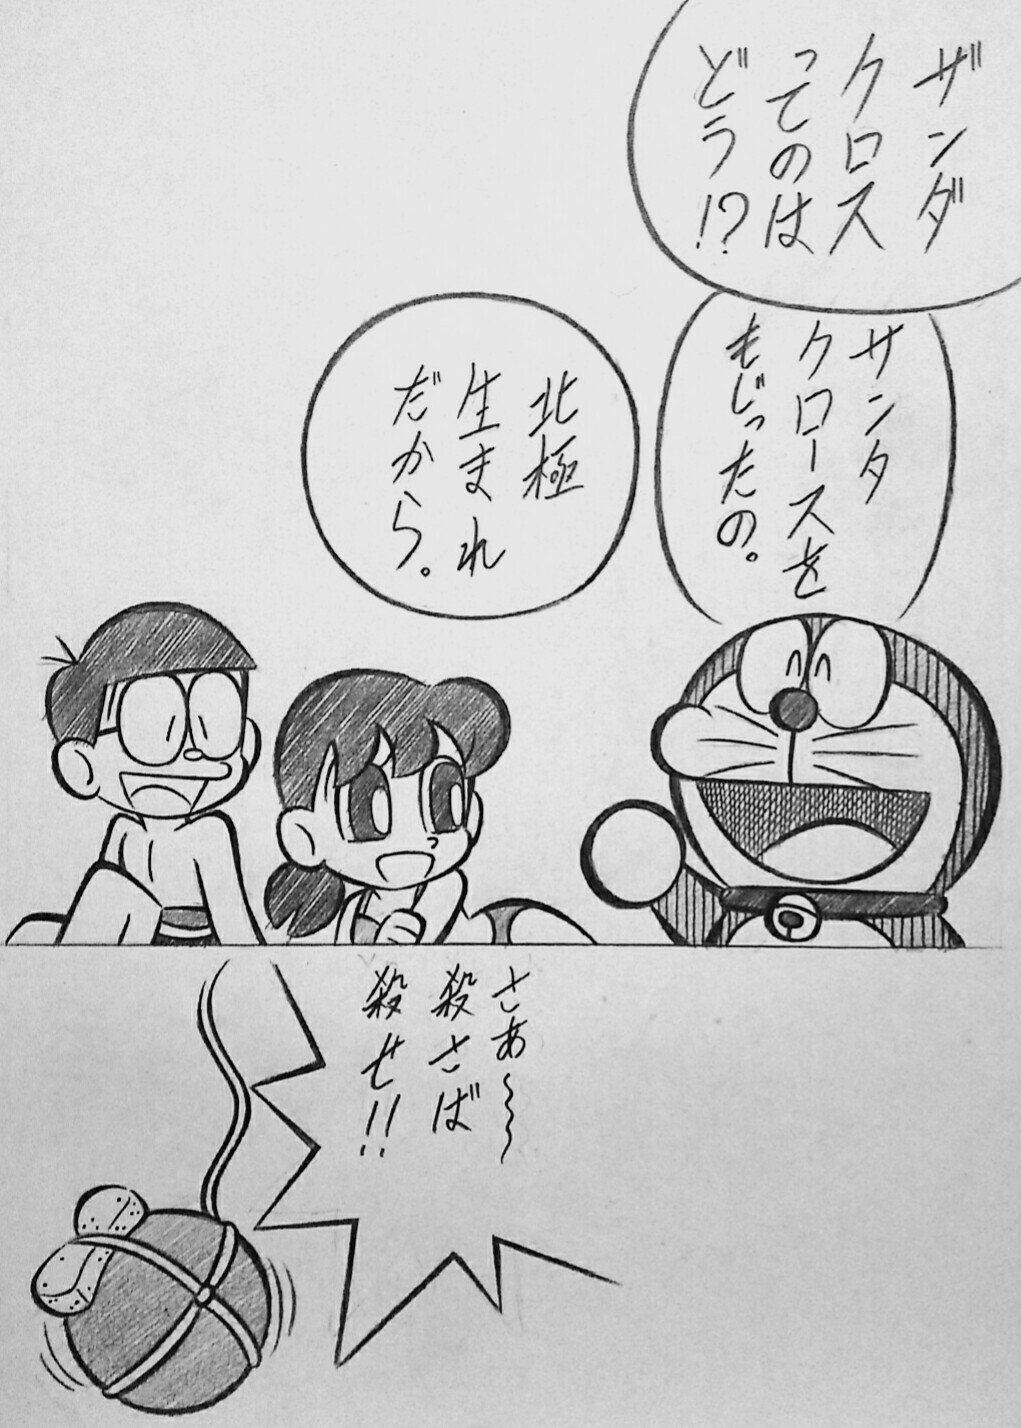 ザンダ
クロス
ってのは
どう!?
サンタ
クロースを
もじったの。
北極
生まれ
だから。
さあ〜〜〜
殺さば
殺せ!!